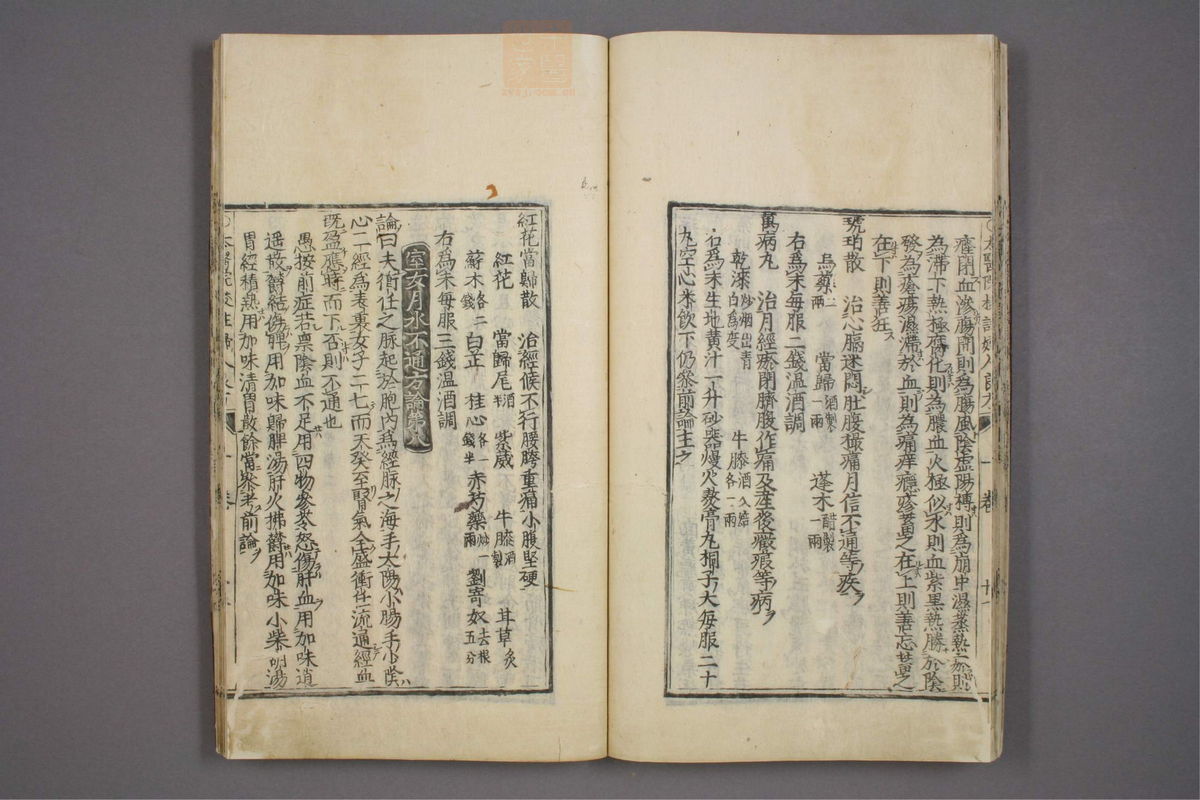 瘧閉血滲腸間則為腸風陰虛陽搏則為崩中濕蒸熱瘀則
為滯下熱極腐化則為膿血火極似水則血紫黑熱勝於陰
發為瘡瘍濕滯於血則為痛痒癮疹蓄之在上則善忘蓄之
在下則善狂
琥珀散 治心膈迷悶肚腹撮痛月信不通等疾
烏藥二兩 當歸酒製一兩 蓬木醋製一兩
右為末每服二錢溫酒調
萬病丸 治月經瘀閉臍腹作痛及產後癥瘕等病
乾漆炒烟出青白為度 牛膝酒久焙各一兩
右為末生地黃汁一升砂器慢火熬膏丸桐子大每服二十
丸空心米飲下仍參前論主之
紅花當歸散 治經候不行腰胯重痛小腹堅硬
紅花 當歸尾酒半 紫葳 牛膝酒製 甘草炙
蘇木各二錢 白芷 桂心各一錢半 赤芍藥炒一兩 劉寄奴去根五分
右為末每服三錢溫酒調
室女月水不通方論第八
論曰夫衝任之脉起於胞內為經脉之海手太陽小腸手少陰
心二經為表裏女子二七而天癸至腎氣全盛衝任流通經血
既盈應時而下否則不通也
愚按前症若禀陰血不足用四物參苓怒傷肝血用加味逍
遥散鬱結傷脾用加味歸脾湯肝火拂鬱用加味小柴胡湯
胃經積熱用加味清胃散餘當參考前論